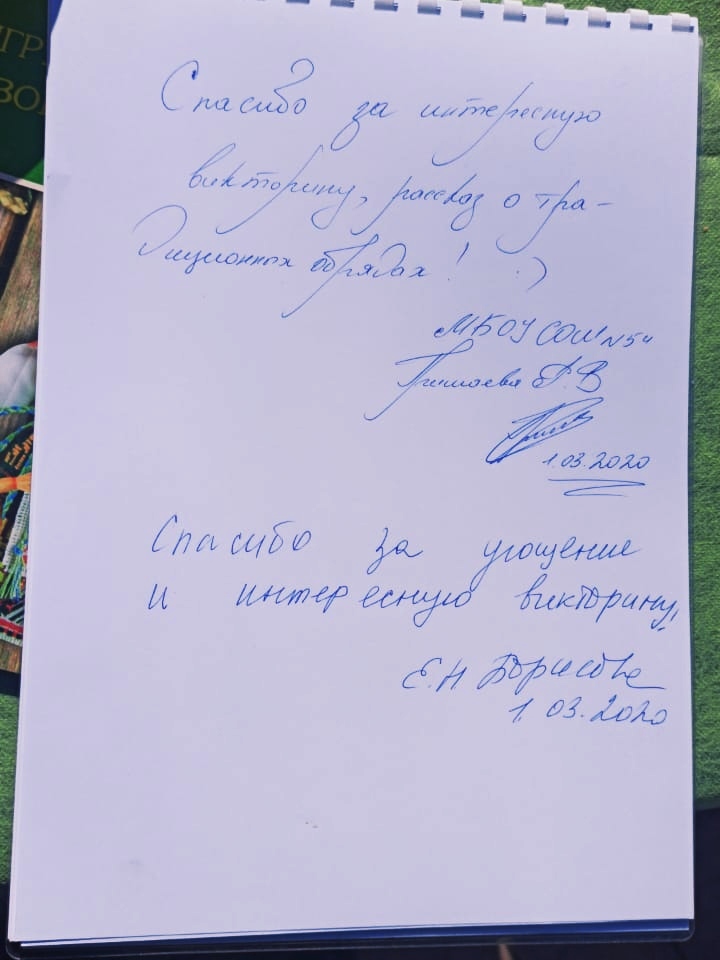 Спасибо за интересную
викторину, рассказ о тра-
диционных обрядах! :)
МБОУ СОШ №54
1.03.2020
Спасибо за угощение
и интересную викторину!
Е.Н Борисова
1.03.2020